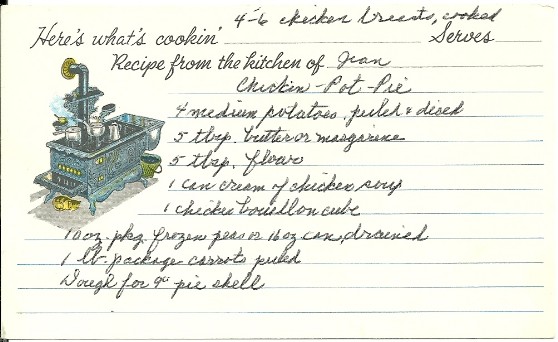 4-6 chicken breasts, cooked
Here's what's cookin' Serves
Recipe from the kitchen of Jean
Chicken-Pot-Pie
4 medium potatoes, peeled & diced
5 tbsp. butter or margarine
5 tbsp. flour
1 can cream of chicken soup
1 chicken bouillon cube
10 oz. pkg. frozen peas or 16 oz can, drained
1 lb. package carrots peeled
Dough for 9" pie shell